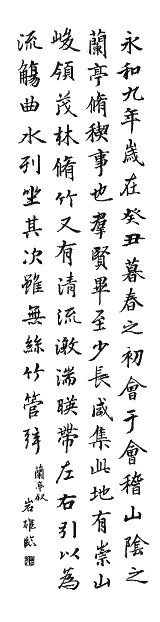 永和九年歲在癸丑暮春之初會于會稽山陰之
蘭亭脩稧事也羣賢畢至少長咸集此地有崇山
峻領茂林脩竹又有清流激湍暎帶左右引以為
流觴曲水列坐其次雖無絲竹管弦
蘭亭叙
岩雄臨